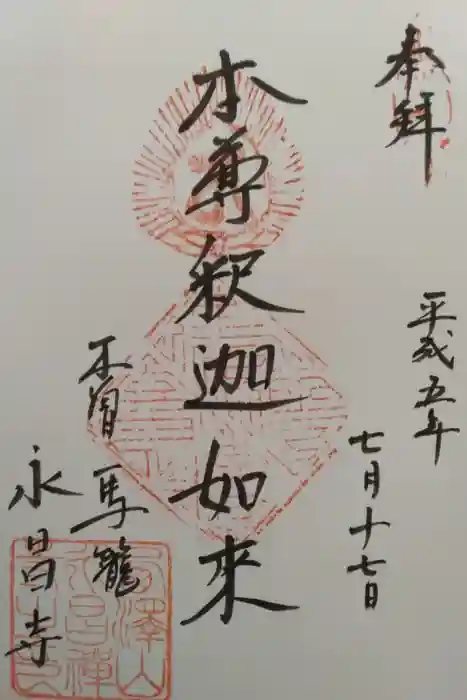 奉拝
平成五年
七月十七日
本尊釈迦如来
木曽 馬籠
永昌寺